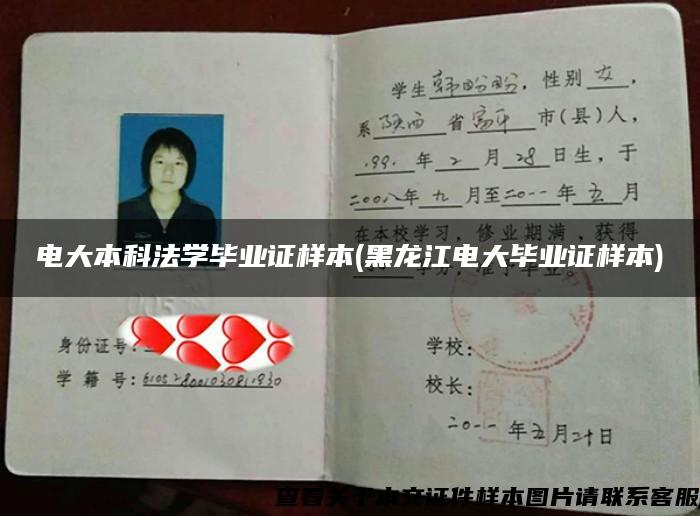 学生韩盼盼，性别女，
系陕西省富平市(县)人，
199.年2月28日生，于
二00八年九月至二0一一年五月
在本校学习，修业期满，获得
学分，准予毕业。
电大本科法学毕业证样本(黑龙江电大毕业证样本)
身份证号：
学籍号：610528001030811930
学校：
校长：
二0一一年五月二十日
查看关于本文证件样本图片请联系客服